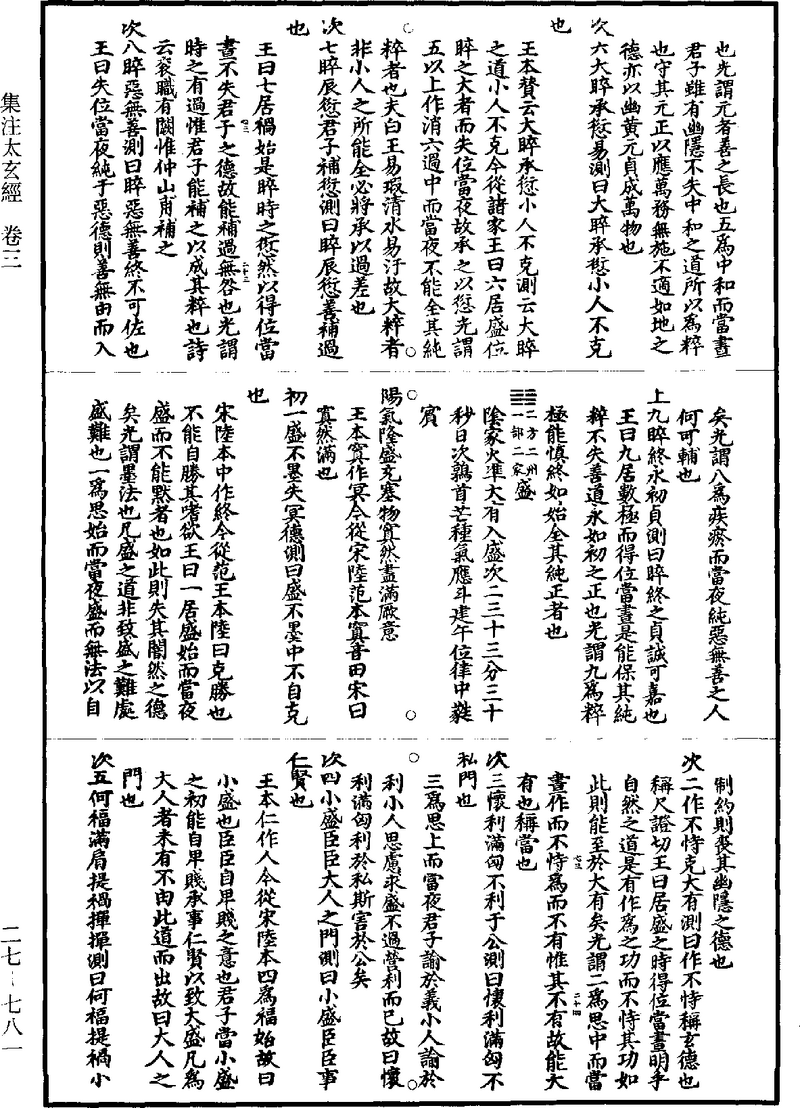 集注太玄經　卷三
二七—七八一
也光謂元者善之長也五爲中和而當晝
君子雖有幽隱不失中和之道所以爲粹
也守其元正以應萬務無施不適如地之
德亦以幽黃元貞成萬物也
次六大睟承愆易測曰大睟承愆小人不克
也
王本贊云大睟承愆小人不克測云大睟
之道小人不克今從諸家王曰六居盛位
睟之大者而失位當夜故承之以愆光謂
五以上作消六過中而當夜不能全其純
粹者也夫白玉易瑕清水易汙故大粹者
非小人之所能全必將承以過差也
次七睟辰愆君子補愆測曰睟辰愆善補過
也
王曰七居禍始是睟時之愆然以得位當
晝不失君子之德故能補過無咎也光謂
時之有過惟君子能補之以成其粹也詩
云衮職有闕惟仲山甫補之
次八睟惡無善測曰睟惡無善終不可佐也
王曰失位當夜純于惡德則善無由而入
矣光謂八爲疾瘀而當夜純惡無善之人
何可輔也
上九睟終永初貞測曰睟終之貞誠可嘉也
王曰九居數極而得位當晝是能保其純
粹不失善道永如初之正也光謂九爲粹
極能慎終如始全其純正者也
䷀二方二州一部二家盛
陰家火準大有入盛次二三十三分三十
秒日次鶉首芒種氣應斗建午位律中蕤
賓
陽氣隆盛充塞物窴然盡滿厥意
王本窴作冥今從宋陸范本窴音田宋曰
窴然滿也
初一盛不墨失冥德測曰盛不墨中不自克
也
宋陸本中作終今從范王本陸曰克勝也
不能自勝其嗜欲王曰一居盛始而當夜
盛而不能默者也如此則失其闇然之德
矣光謂墨法也凡盛之道非致盛之難處
盛難也一爲思始而當夜盛而無法以自
制約則喪其幽隱之德也
次二作不恃克大有測曰作不恃稱玄德也
稱尺證切王曰居盛之時得位當晝明乎
自然之道是有作爲之功而不恃其功如
此則能至於大有矣光謂二爲思中而當
晝作而不恃爲而不有惟其不有故能大
有也稱當也
次三懷利滿匈不利于公測曰懷利滿匈不
私門也
三爲思上而當夜君子諭於義小人諭於
利小人思慮求盛不過營利而已故曰懷
利滿匈利於私斯害於公矣
次四小盛臣臣大人之門測曰小盛臣臣事
仁賢也
王本仁作人今從宋陸本四爲福始故曰
小盛也臣臣自卑賤之意也君子當小盛
之初能自卑賤承事仁賢以致大盛凡爲
大人者未有不由此道而出故曰大人之
門也
次五何福滿肩提禍撣撣測曰何福提禍小